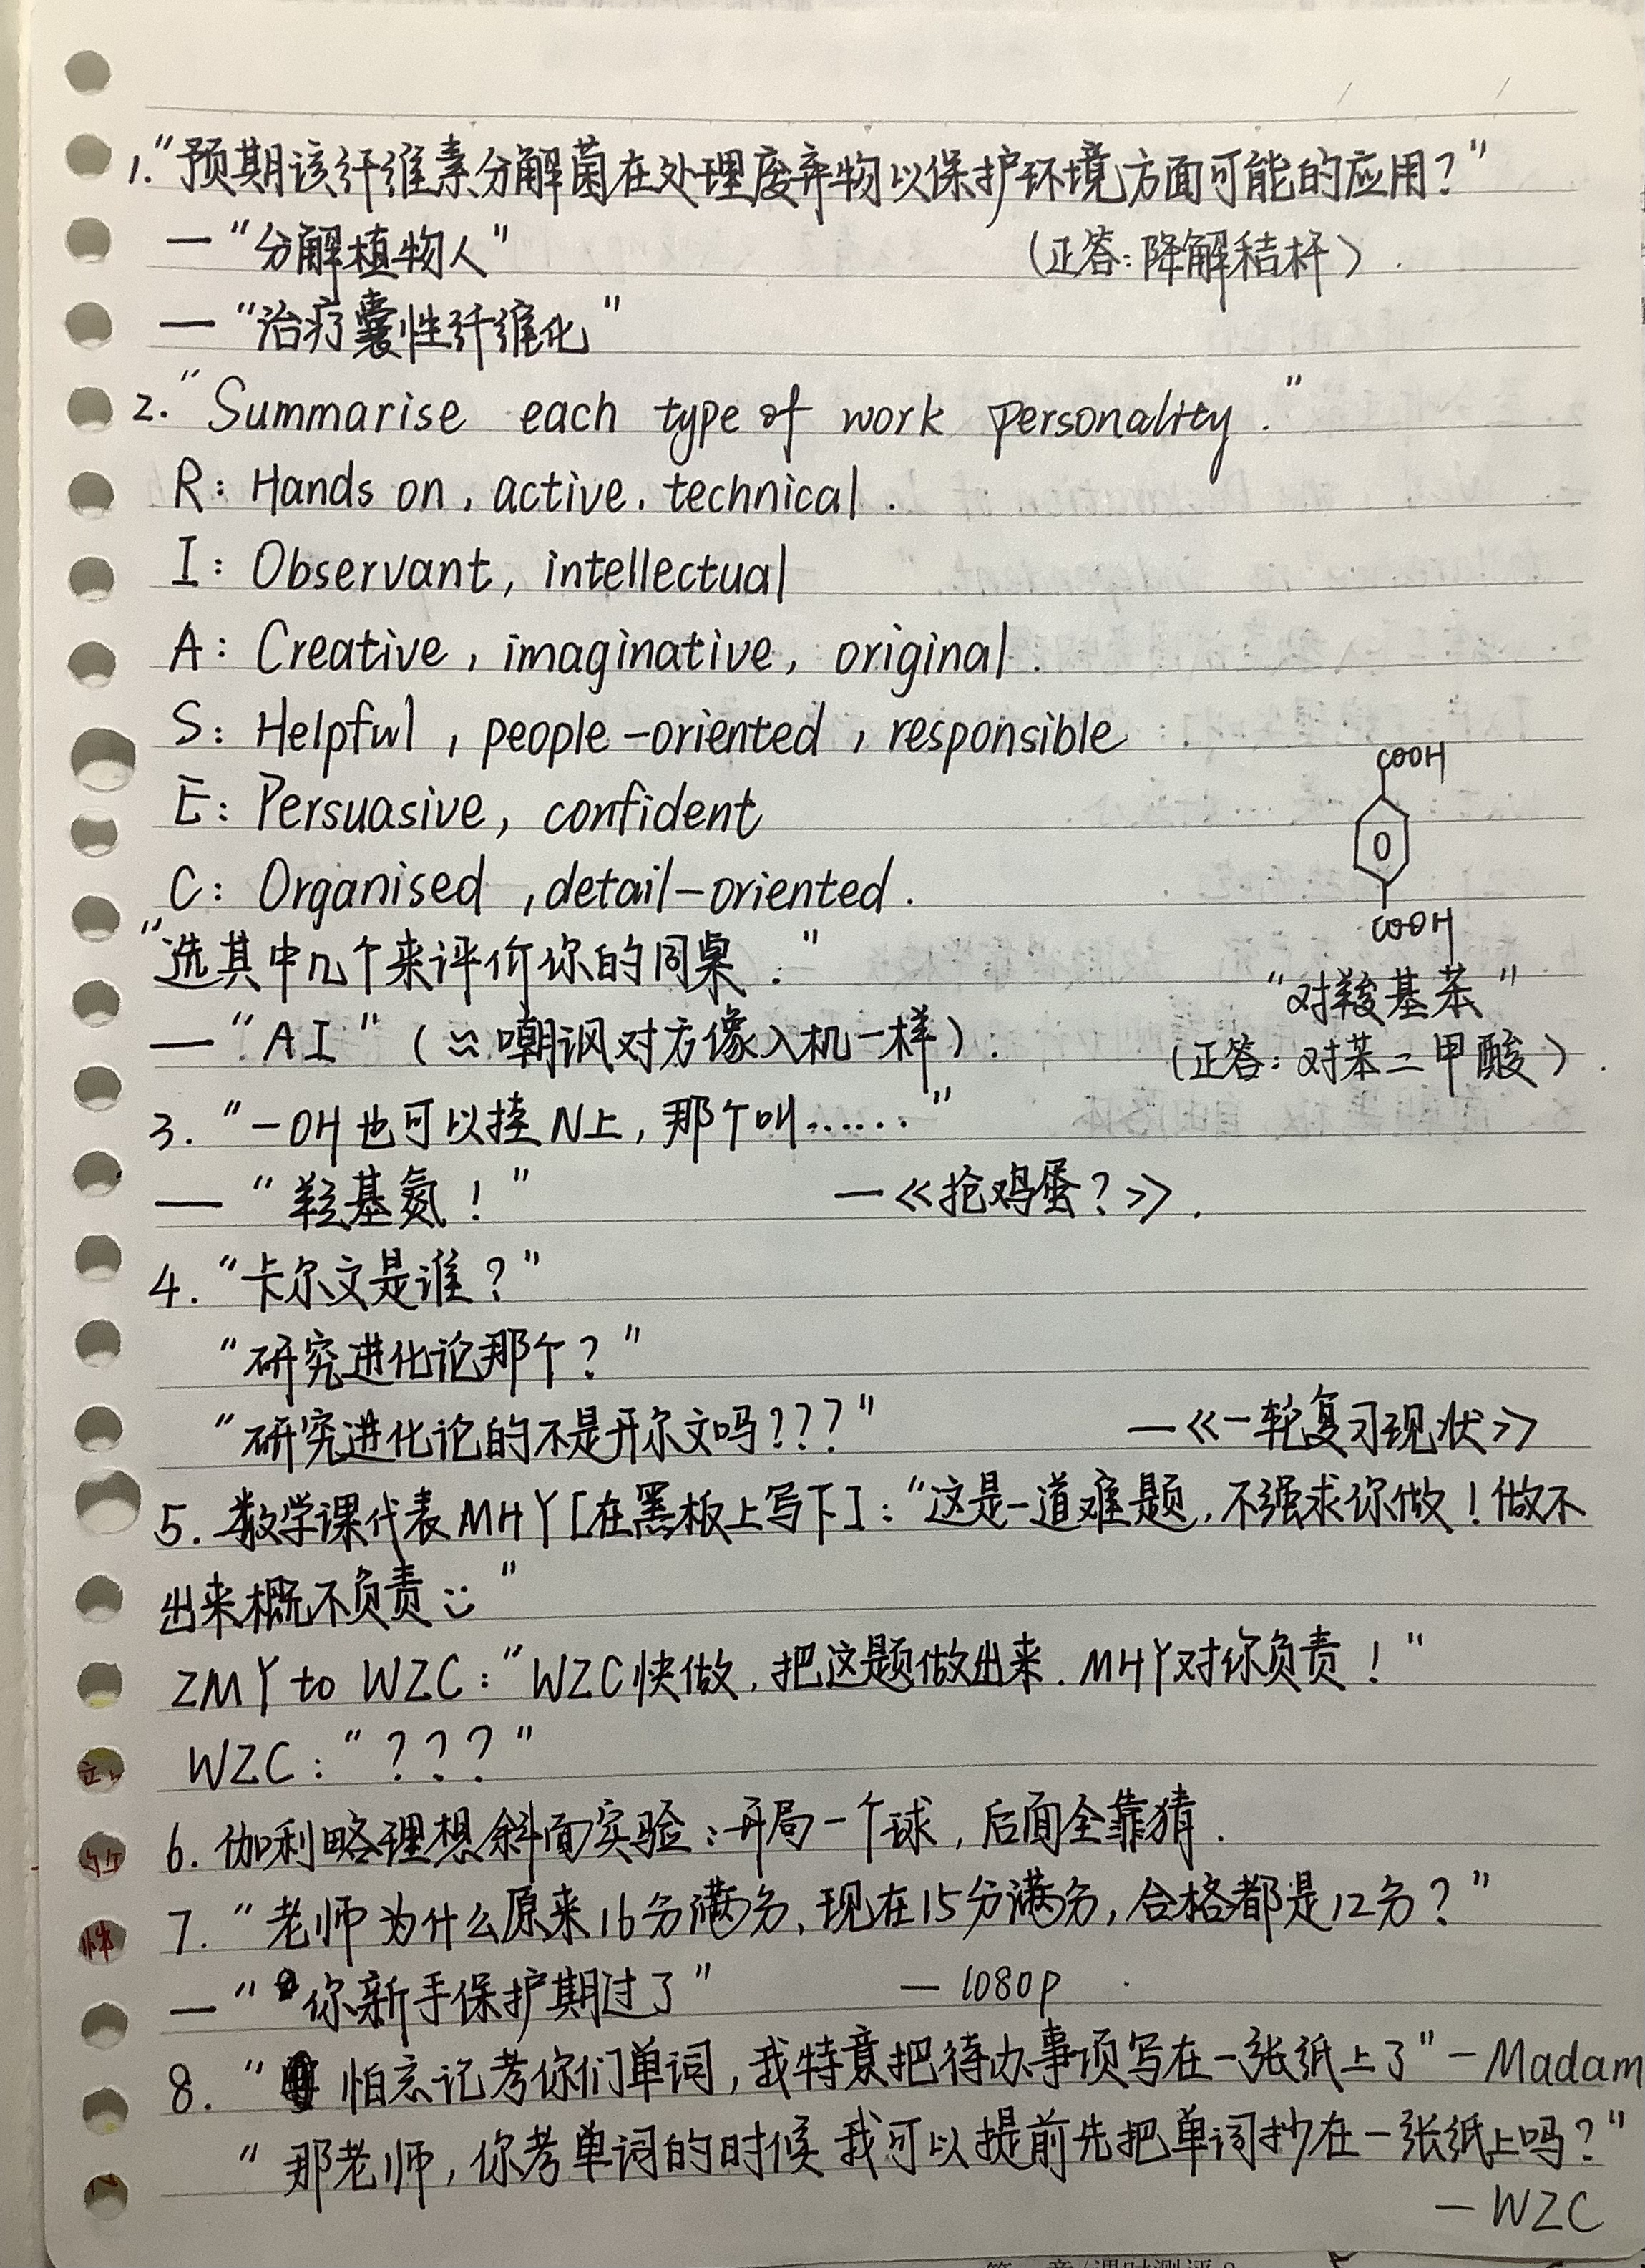 1."预期该纤维素分解菌在处理废弃物以保护环境方面可能的应用?"
—"分解植物人" (正答:降解秸杆).
—"治疗囊性纤维化"
2."Summarise each type of work personality."
R: Hands on, active, technical.
I: Observant, intellectual
A: Creative, imaginative, original.
S: Helpful, people-oriented, responsible
E: Persuasive, confident
C: Organised, detail-oriented.
COOH
COOH
"对羧基苯"
(正答:对苯二甲酸).
"选其中几个来评价你的同桌."
—"AI"(≈嘲讽对方像人机一样).
3."-OH也可以挂N上,那个叫……"
—"羟基氮!" —《抢鸡蛋?》.
4."卡尔文是谁?"
"研究进化论那个?"
"研究进化论的不是开尔文吗???" —《一轮复习现状》
5.数学课代表MHY[在黑板上写下]:"这是一道难题,不强求你做!做不
出来概不负责"
ZMY to WZC:"WZC快做,把这题做出来.MHY对你负责!"
WZC:"???"
6.伽利略理想斜面实验:开局一个球,后面全靠猜.
7."老师为什么原来16分满分,现在15分满分,合格都是12分?"
—"你新手保护期过了" —1080p
8."怕忘记考你们单词,我特意把待办事项写在一张纸上了"—Madam
"那老师,你考单词的时候我可以提前先把单词抄在一张纸上吗?"
—WZC